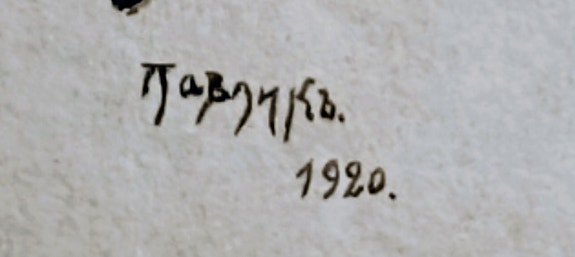 Павлукъ.
1920.